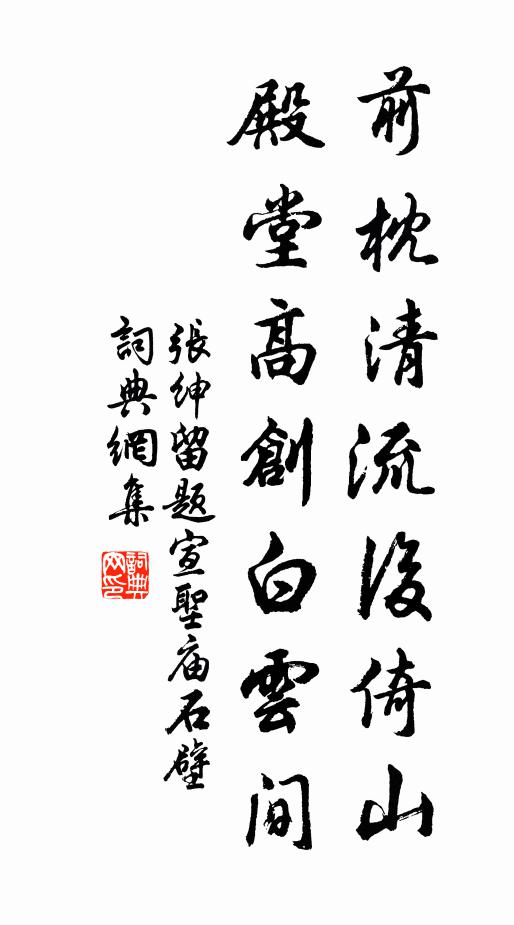 前枕清流後倚山
殿堂高創白雲間
張紳留題宣聖庙石壁
詞典網集
詞典网印